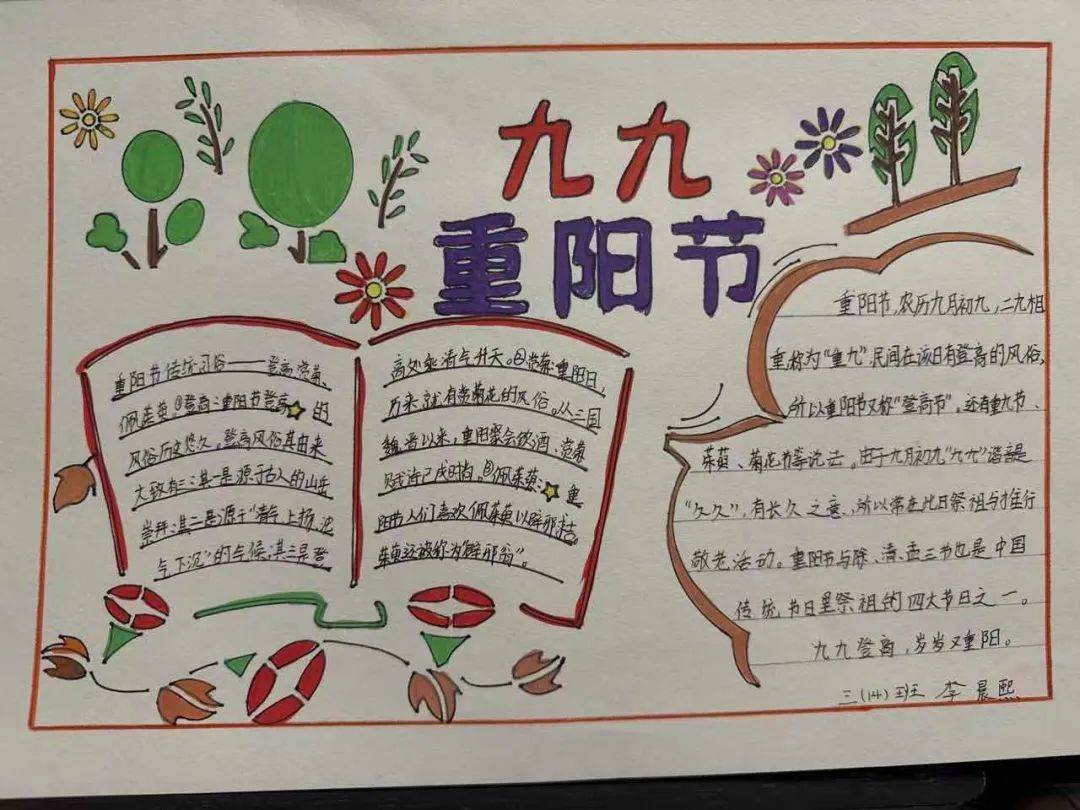 九九
重阳节
重阳节传统习俗——登高、赏菊、
佩茱萸。①登高:重阳节登高的
风俗历史悠久。登高风俗其由来
大致有二:其一是源于古人的山岳
崇拜;其二是源于“清气上扬、浊
气下沉”的气候;其三是登
高处乘清气升天。②赏菊:重阳日,
历来就有赏菊花的风俗。从三国
魏晋以来,重阳聚会饮酒、赏菊
赋诗已成时尚。③佩茱萸:重
阳节人们喜欢佩茱萸以辟邪
茱萸还被称为“辟邪翁”。
重阳节,农历九月初九,二九相
重称为“重九”民间在该日有登高的风俗,
所以重阳节又称“登高节”。还有重九节、
茱萸、菊花节等说法。由于九月初九“九九”谐音是
“久久”,有长久之意,所以常在此日祭祖与推行
敬老活动。重阳节与除、清、盂三节也是中国
传统节日里祭祖的四大节日之一。
九九登高,岁岁又重阳。
三(14)班 李晨熙